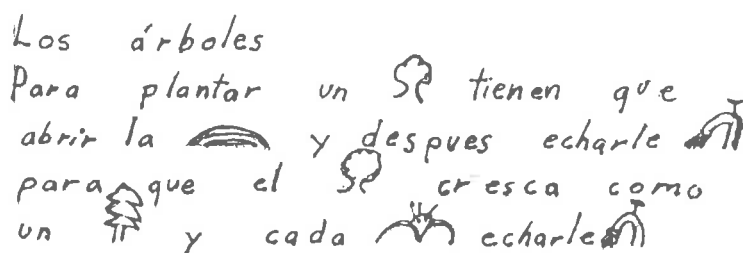 Los árboles
Para plantar un tienen que
abrir la y despues echarle
para que el cresca como
un y cada echarle